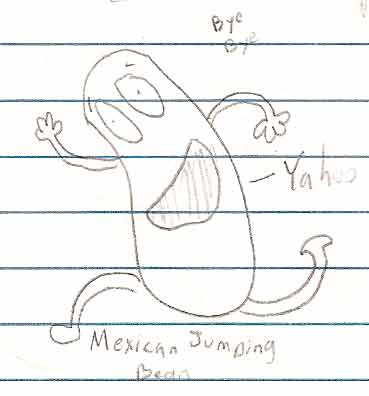 Bye
Bye
- Yahoo
Mexican Jumping
Bean